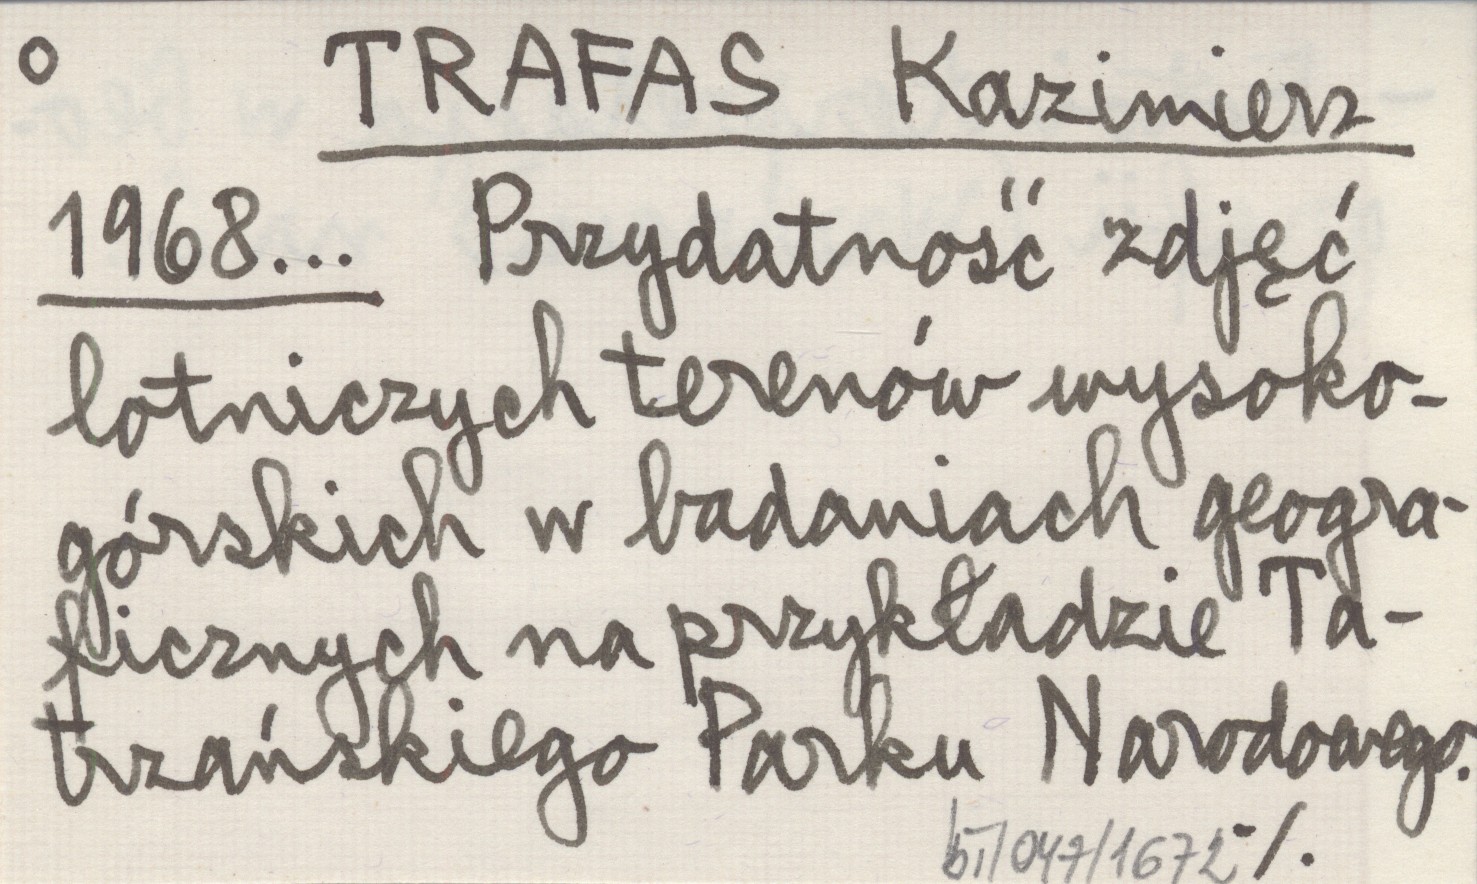 o TRAFAS Kazimierz
1968... Przydatność zdjęć
lotniczych terenów wysoko-
górskich w badaniach geogra-
ficznych na przykładzie Ta-
trzańskiego Parku Narodowego.
-/.
/047/1672